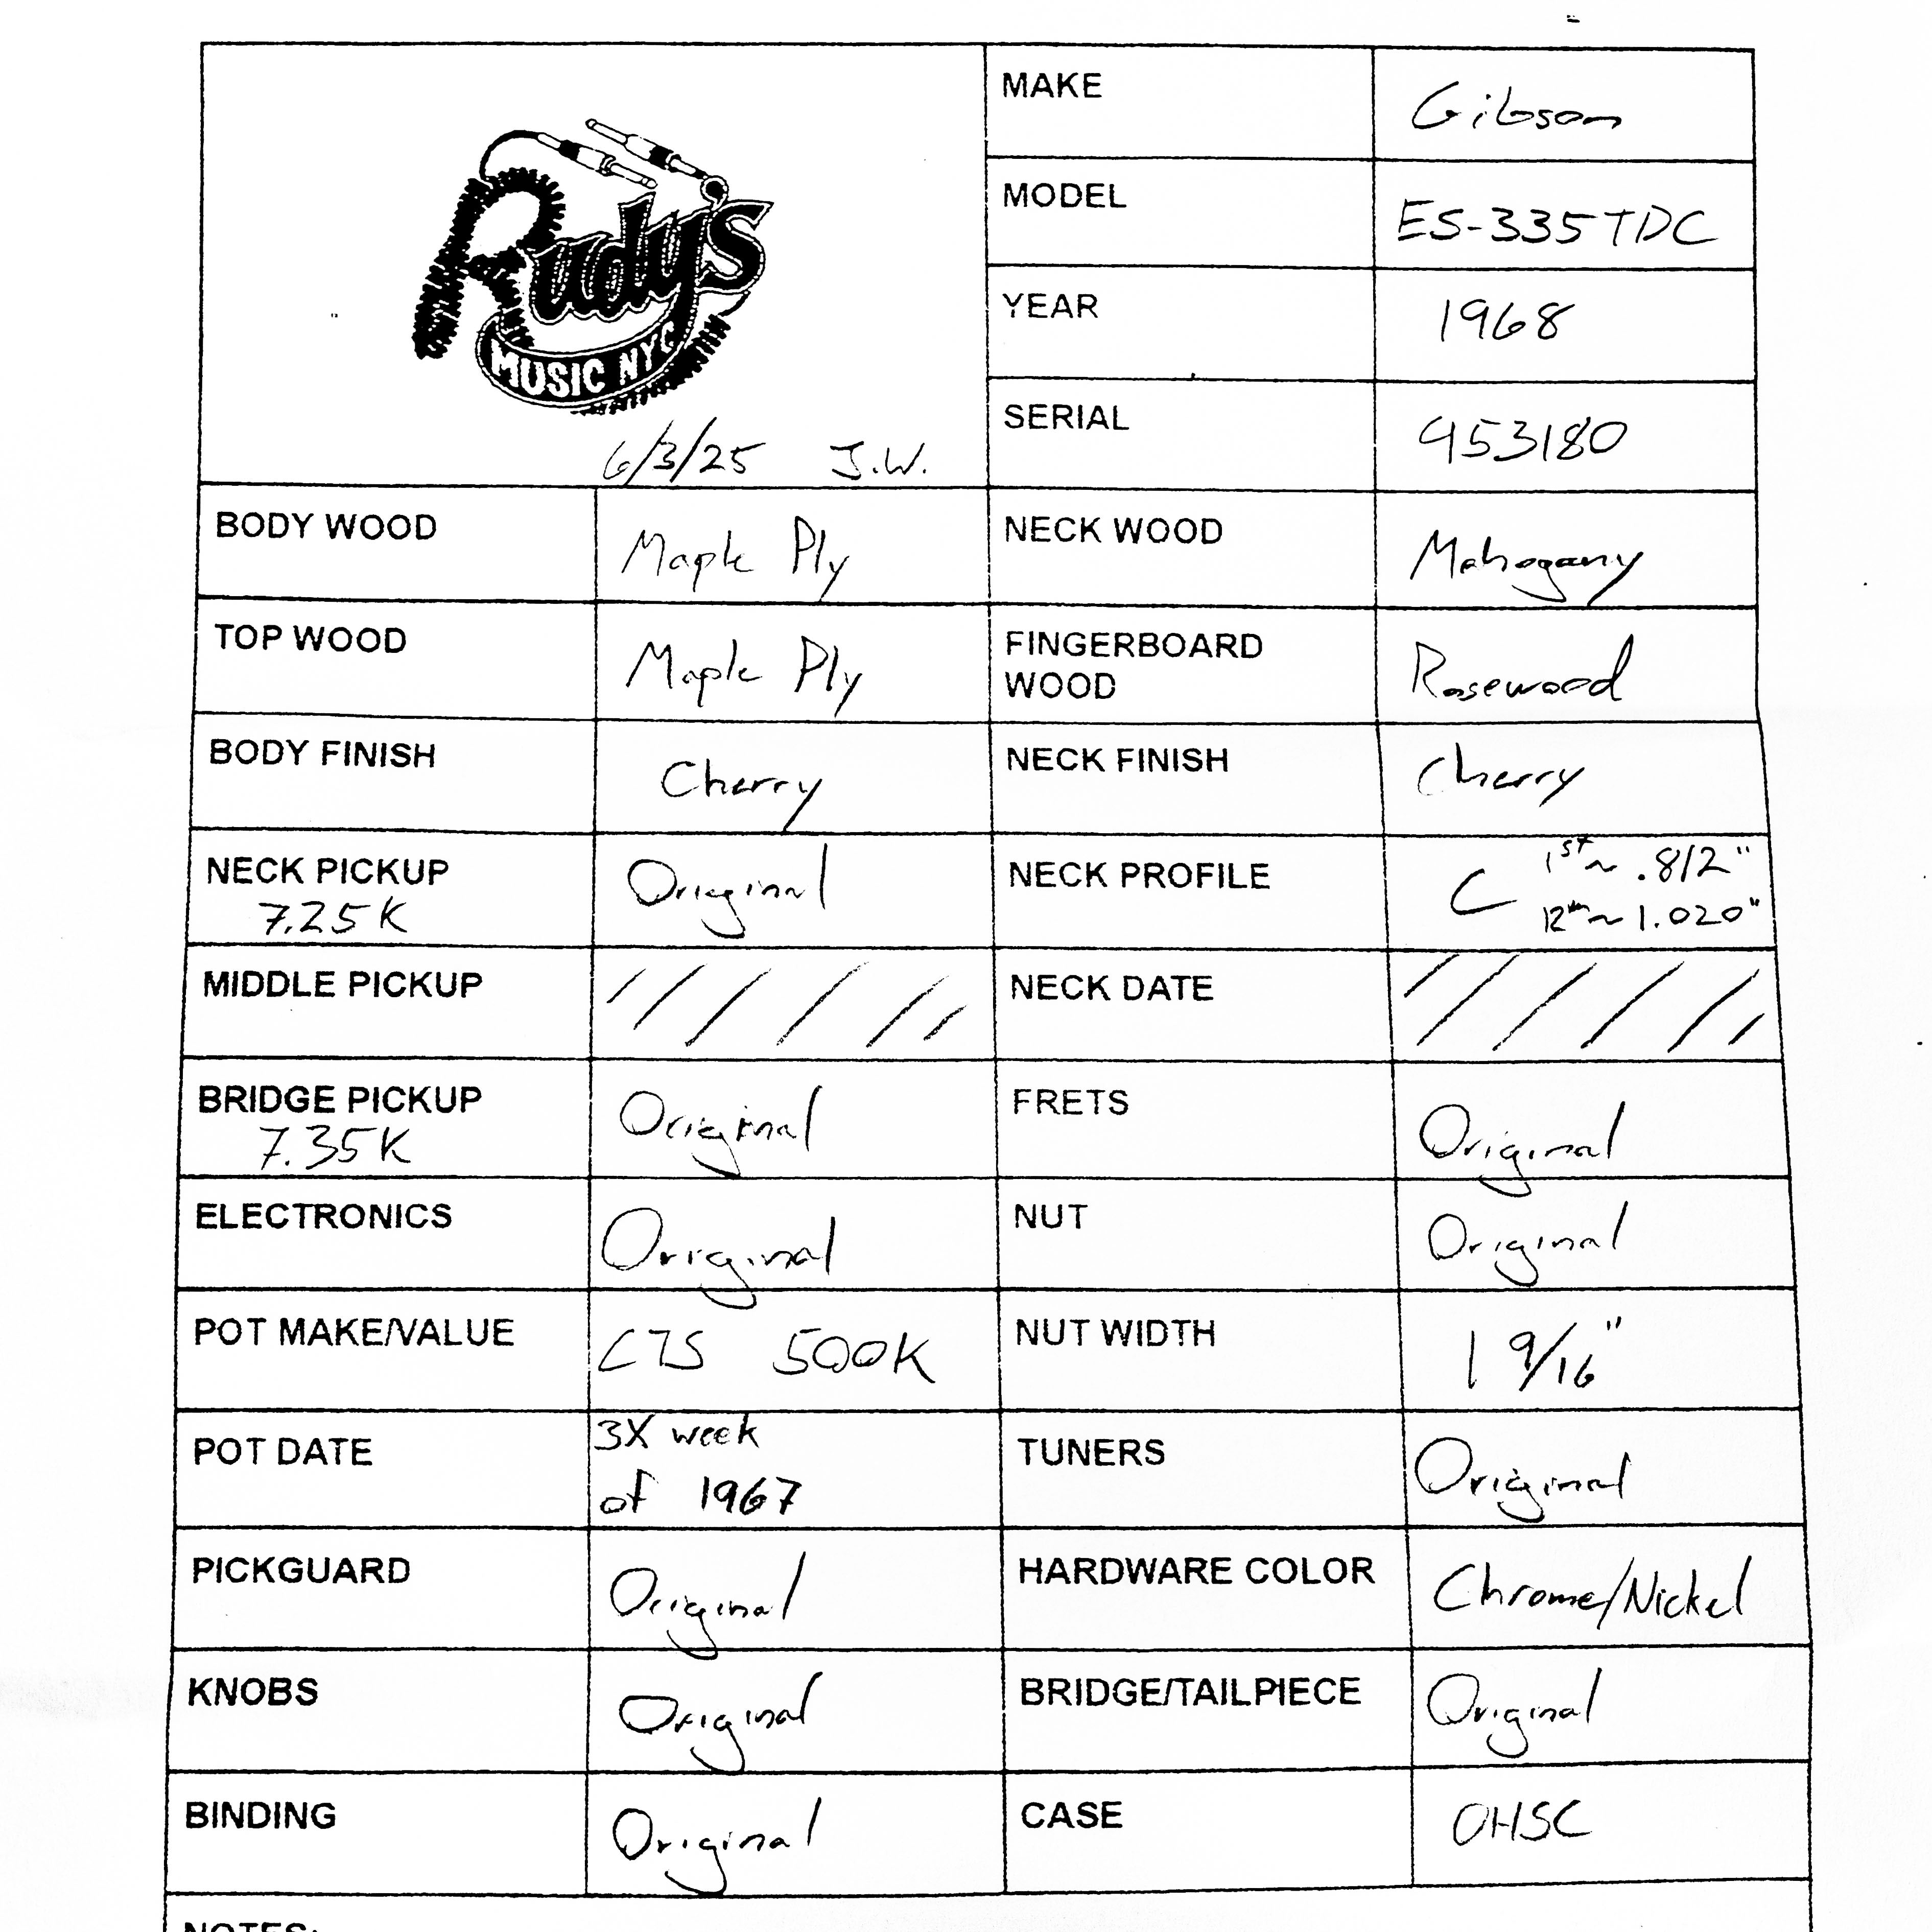 Rudy's
MUSIC NYC
6/3/25 J.W.
MAKE Gibson
MODEL ES-335TDC
YEAR 1968
SERIAL 953180
BODY WOOD Maple Ply NECK WOOD Mahogany
TOP WOOD Maple Ply FINGERBOARD WOOD Rosewood
BODY FINISH Cherry NECK FINISH Cherry
NECK PICKUP Original NECK PROFILE C 1st ~ .812"
7.25K 12th ~ 1.020"
MIDDLE PICKUP NECK DATE
BRIDGE PICKUP Original FRETS Original
7.35K
ELECTRONICS Original NUT Original
POT MAKE/VALUE CTS 500K NUT WIDTH 1 9/16"
POT DATE 3X week TUNERS Original
of 1967
PICKGUARD Original HARDWARE COLOR Chrome/Nickel
KNOBS Original BRIDGE/TAILPIECE Original
BINDING Original CASE OHSC
NOTES: